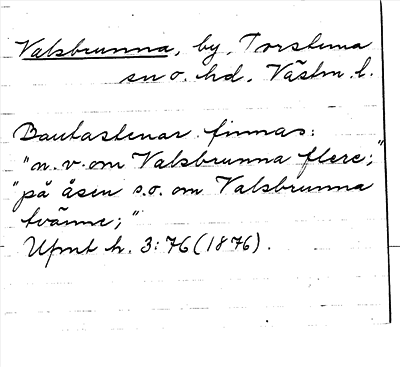 Valsbrunna, by, Torstuna
sn o. hd. Västm. l.
Bautastenar finnas:
"n.v. om Valsbrunna flere;"
"på åsen s.o. om Valsbrunna
tvänne;"
Ufmt h. 3:76 (1876).